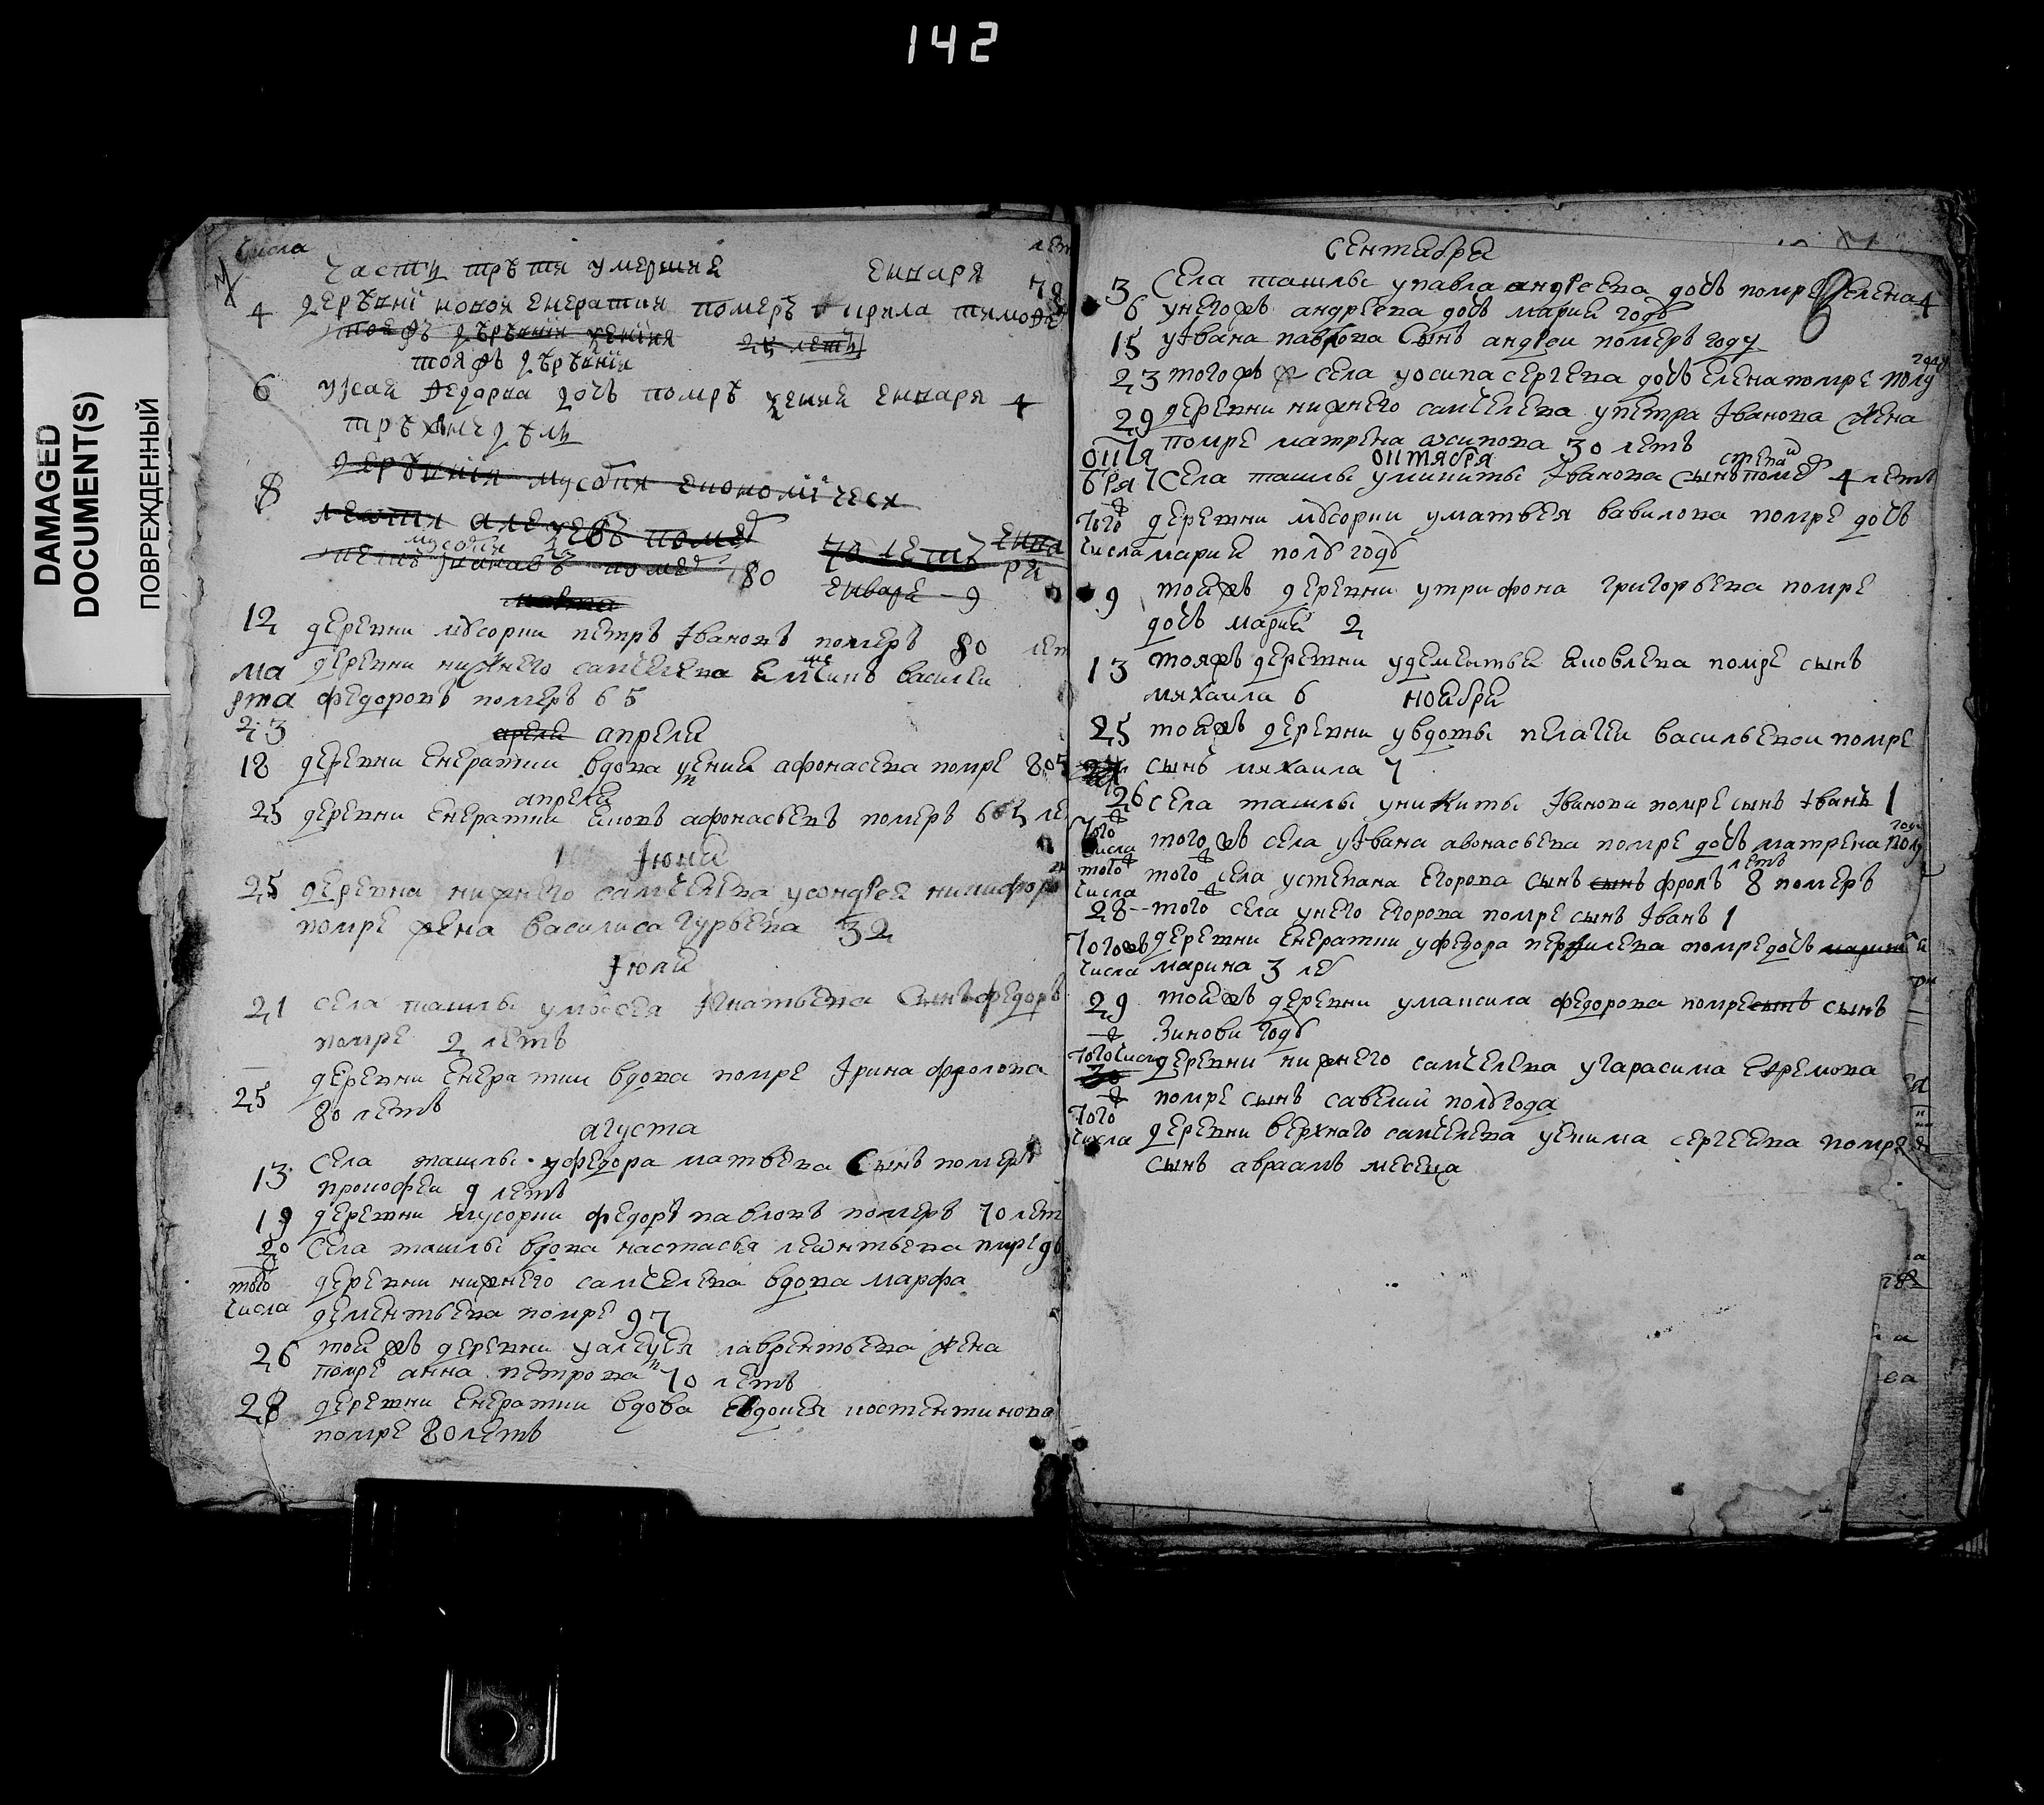 142
DAMAGED
DOCUMENT(S)
ПОВРЕЖДЕННЫЙ
числа лет
часть третя умершия енваря
4 деревни новоя енератия померъ
тояжъ деревния 25 летъ
тояжъ деревнїи
6 федорва дочь помре енваря 4
трехнедель
8 деревния
70 летъ
80 енваря 9
12 деревни мусорки петръ Iвановъ померъ 80 лет
ма деревни нижнего санчелева василеи
рта федоровъ померъ 65
23 апреля
18 деревни енератки вдова афонасева помре 80
апреля
25 деревни енератки яковъ афонасьевъ померъ 6
Iюня
25 деревна нижнего санчелева у андрея никифоро
помре жена василиса гурьева 32
Iюля
21 села ташлы у мосея Iгнатьева сынъ федоръ
помре 2 летъ
25 деревни енератки вдова помре Iрина фролова
80 летъ
агуста
13 села ташлы уфедора матвева сынъ померъ
прокофеи 9 летъ
19 деревни мусорки федоръ павловъ померъ 70 лет
20 села ташлы вдова настасья леонтьева
того деревни нижнего санчелева вдова марфа
числа дементьева помре 97
26 тояжъ деревни уалеѯея лаврентьева жена
помре анна петрова 70 летъ
28 деревни енератки вдова евдокея костентинова
помре 80 летъ
сентября
3 села ташлы у павла андреева дочь помре елена 4
6 унегожъ андреева дочь мария годъ
15 уIвана павлова сынъ андреи померъ году
23 тогожъ села уосипа сергева дочь елена помре полу году
29 деревни нижнего санчелева упетра Iванова жена
помре матрена осипова 30 летъ
октя октября степан
бря 7 села ташлы уникиты Iванова сынъ поме 4 летъ
того деревни мусорки уматвея вавилова помре дочь
числа мария полъ годъ
9 тояжъ деревни утрифона григорьева помре
дочь мария 2
13 тояжъ деревни удементья яковлева помре сынъ
михаила 6 ноября
25 тояжъ деревни увдоты пелагеи васильевои помре
сынъ михаила 7
26 села ташлы уникиты Iванова помре сынъ Iванъ 1
того числа тогожъ села уIвана авонасьева помре дочь матрена полу году
того числа того села устепана егорова сынъ сынъ фролъ 8 летъ померъ
28 того села унего егорова помре сынъ Iванъ 1
тогожъ деревни енератки уфедора помре дочь
числа марина 3 ле
29 тояжъ деревни умаксила федорова помре сынъ сынъ
зинови годъ
того числа деревни нижнего санчелева угарасима ефремова
помре сынъ савелии полъ года
того числа деревни верхнаго санчелева уекима сергеева помре
сынъ авраамъ месеца